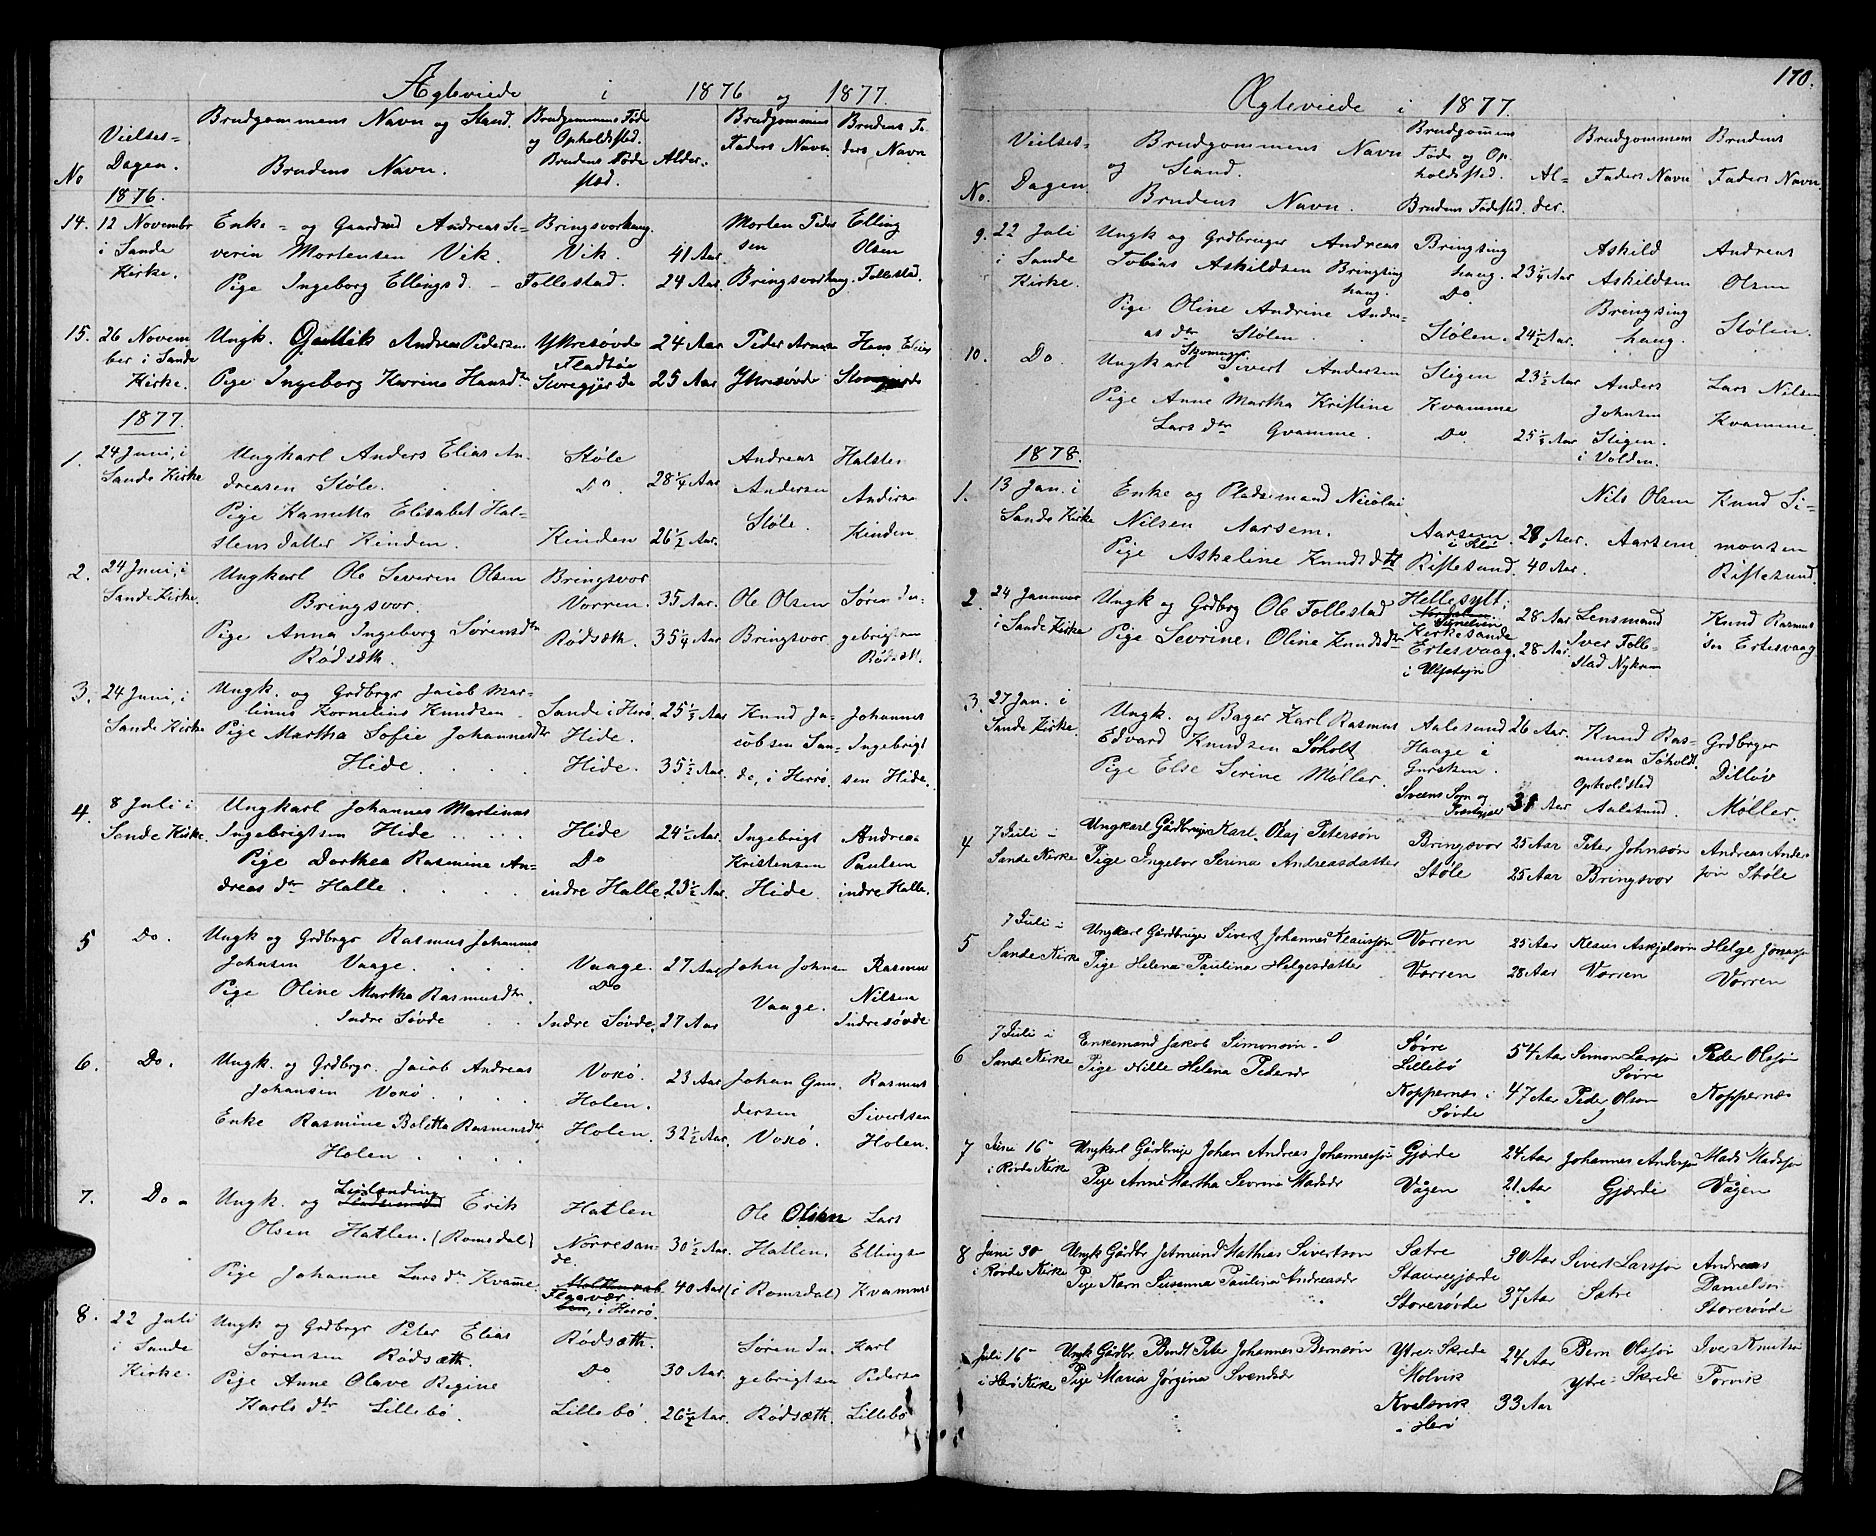 Ægteviede i 1876 og 1877.
No
Vielses-
Dagen.
Brudgommens Navn og Stand.
Brudens Navn.
Brudgommens Føde
og Opholdsted.
Brudens Føde
sted.
Alder.
Brudgommens
Faders Navn
Brudens Fa-
ders Navn
1876.
14. 12 Novembr
i Sande
Kirke.
Enke- og Gaardmd Andreas Se-
verin Mortensen Vik.
Pige Ingeborg Ellingsd. Follestad.
Bringsvorhaug.
Vik. 41 Aar
24 Aar
Morten Peder
sen
Bringsvorhaug.
Elling
Olsen
Follestad.
15. 26 Novem
ber i Sande
Kirke.
Ungk. Andreas Pedersen
Pige Ingeborg Karrine Hansdtr
Yttresøvde
Fladtøe
Storegjerde
24 Aar
25 Aar
Peder Arne
Yttresøvde
Hans Elias
1877.
1. 24 Juni, i
Sande Kirke
Ungkarl Anders Elias An
dreasen Støle.
Pige Hamette Elisabet Hal-
stens datter Kinden.
Støle
Do.
Kinden
28 1/4 Aar
26 1/2 Aar.
Andreas
Andersen
Støle.
Halsten
Andersen
Kinden
2. 24 Juni, i
Sande Kirke.
Ungkarl Ole Severen Olsen
Bringsvor.
Pige Anna Ingeborg Sørensdtr
Rødsæth.
Bringsvor
Vorren.
Rødsæth.
35 Aar.
35 1/4 Aar
Ole Olsen
Bringsvor
Søren In-
gebrigtsen
Rødsæt.
3. 24 Juni, i
Sande Kirke
Ungk. og Grdbrgr Jacob Mar-
linus Kornelius Knudsen
Pige Martha Sofie Johannesdtr
Hide
Sande i Herø
Hide.
Hide.
25 1/3 Aar
35 1/2 Aar
Knud Ja-
cobsen San-
de, i Herrø
Johannes
Ingebrigt
sen Hide.
4. 8 Juli i
Sande Kirke.
Ungkarl Johannes Martinus
Ingebrigtsen Hide
Pige Dorthea Rasmine An-
dreas dtr Halle
Hide
Do
indre Halle.
24 1/2 Aar.
23 1/2 Aar
Ingebrigt
Kristensen
Hide
Andreas
Paulsen
indre Halle.
5 Do.
Ungk og Grdbrgr Rasmus Johannes
Johnsen Vaage.
Pige Oline Martha Rasmusdtr.
Indre Søvde
Vaage.
Do
Indre Søvde.
27 Aar
27 Aar
John Johnsen
Vaage.
Rasmus
Nilsen
Indresøvde
6. Do.
Ungk. og Grdbrgr. Jacob Andreas
Johansen Voxø.
Enke Rasmine Boletta Rasmusdtr
Holen
Voxø.
Holen.
Holen.
23 Aar
32 1/2 Aar.
Johan Gun
dersen
Voxø.
Rasmus
Sivertsen
Holen.
7. Do
Ungk. og Erik
Olsen Hatlen. (Romsdal)
Pige Johanne Lars dtr Kvamme.
Hatlen
Norresan-
de.
Flaavær
i Herrø
30 1/2 Aar
40 Aar
Ole Olsen
Hatlen.
(i Romsdal)
Lars
Ellingsen
Kvamme
8. 22 Juli
i Sande
Kirke.
Ungk og Grdbrgr Peter Elias
Sørensen Rødsæth.
Pige Anne Olave Regine
Karls dtr Lillebø.
Rødsæth.
Do
Lillebø
30 Aar.
26 1/2 Aar.
Søren In-
gebrigtsen
Rødsæth.
Karl
Pedersen
Lillebø
170.
Ægteviede i 1877.
No.
Vielses-
Dagen
Brudgommens Navn
og Stand.
Brudens Navn.
Brudgommens
Føde og Op
holdsted.
Brudens Fødested.
Al-
der.
Brudgommens
Faders Navn
Brudens
Faders Navn.
9. 22 Juli
i Sande
Kirke.
Ungk og Grdbruger Andreas
Tobias Askildsen Bringsing
haug.
Pige Oline Andrine Andre-
as dtr Stølen.
Bringsing
haug.
Do
Stølen.
23 1/4 Aar
24 1/2 Aar.
Askild
Askildsen
Bringsing
haug.
Andreas
Olsen
Stølen.
10. Do
Ungkarl Sivert Andersen
Pige Anne Martha Kristine
Lars dtr Gvamme.
Stigen
Kvamme
Do
23 1/2 Aar
25 1/2 Aar
Anders
Johnsen
Stigen.
i Volden.
Lars Nilsen
Kvamme.
1878.
1. 13 Jan. i
Sande Kirke
Enke og Pladsemand Nicolai
Nilsen Aarsem.
Pige Askeline Knudsdtr
Aarsem
Riftesund.
29 Aar.
40 Aar.
Nils Olsen
Aarsem
Knud Si-
monsen
Riftesund.
2. 24 Januar
i Sande Kirke
Ungk og Grdbrg Ole Follestad
Pige Sevrine. Oline Knudsdtr
Hellesylt,
Kirkesande
Ertesvaag.
i Ulfsteyn
28 Aar
28 Aar
Lensmand
Iver Folle-
stad
Knud Rasmus
sen Ertesvaag
3. 27 Jan. i
Sande Kirke
Ungk. og Bager Karl Rasmus
Edvard Knudsen Soholt
Pige Else Serine Møller.
Aalesund
Haage i
Gursken.
26 Aar.
Aar
Knud Ras-
mussen Soholt.
Opholdsted
Aalesund.
Grdbruger
Møller.
4 7 Juli i
Sande Kirke
Ungkarl Gårdbruger Karl Olaj Petersøn
Pige Ingebor Serina Andreasdatter
Bringsvor
Støle
25 Aar
25 Aar
Peter Johnsøn
Bringsvor
Andreas Anders
søn Støle
5 7 Juli i
Sande Kirke
Ungkarl Gårdbruger Sivert Johannes Klaussøn
Pige Helena Paulina Helgesdatter
Vorren
Vorren
25 Aar
28 Aar
Klaus Askjelsøn
Vorren
Helge Jonassøn
Vorren
6 7 Juli i
Sande Kirke
Enkemand Jakob Simonsøn
Pige Nille Helena Pedersdr
Søvre
Lillebø
Koppernæs i
Søvde
54 Aar
47 Aar
Simon Larssøn
Søvre
Peder Olsøn
Peder Olssøn
Koppernæs
7 Juni 16
i Rovde Kirke
Ungkarl Gårdbruger Johan Andreas Johannessøn
Pige Anne Martha Severine Madsdr
Gjærde
Vågen
24 Aar
21 Aar
Johannes Andersøn
Gjærde
Mads Madssøn
Vågen
8 Juni 30
i Rovde Kirke
Ungk Gårdbr Jetmund Mathias Sivertsøn
Pige Karn Susanna Paulina Andreasdr
Sætre
Stauregjærde
Storerøvde
30 Aar
37 Aar
Sivert Larssøn
Sætre
Andreas
Danielsøn
Storerøvde
Juli 16
i Herø Kirke
Ungk Gårdbr. Bendt Peter Johannes Bernsøn
Pige Maria Jørgina Svendsdr
Ytre-Skrede
Molvik
Kvalsvik
i Herø
24 Aar
33 Aar
Bern Olssøn
Ytre-Skrede
Iver Knutsøn
Torvik